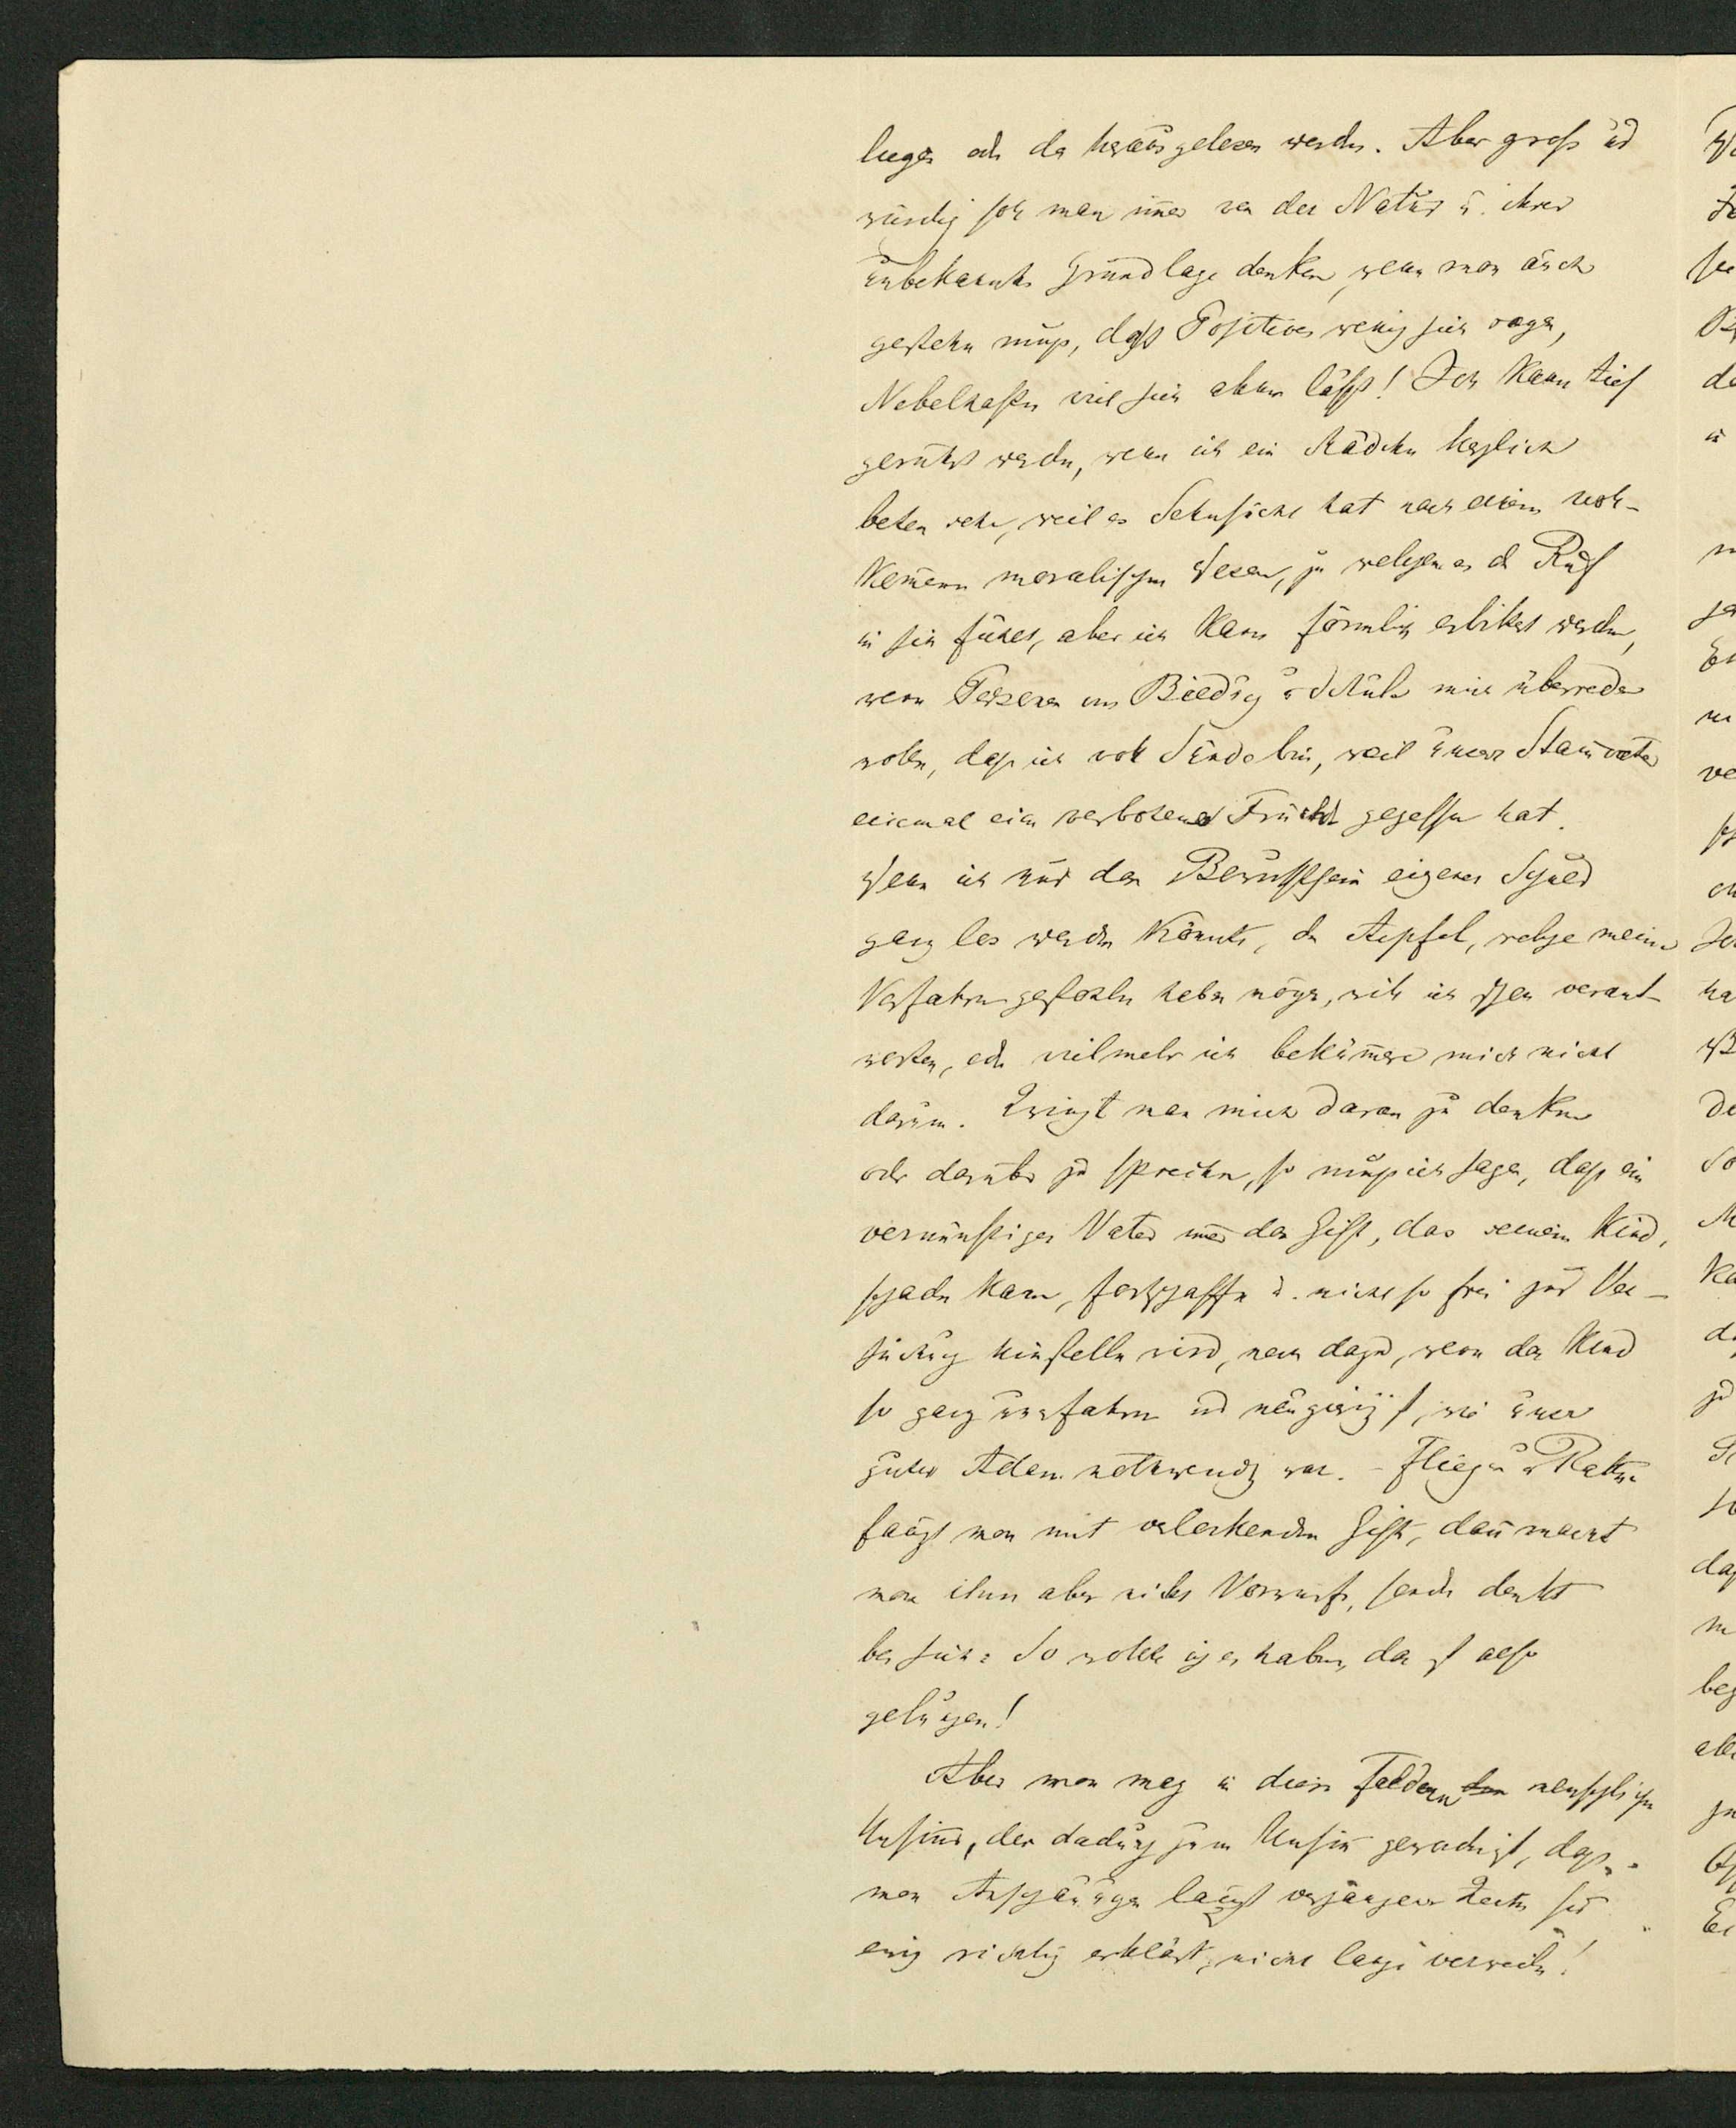 liegen oder da herausgelesen werden. Aber groß und
würdig soll man immer von der Natur u. ihrer
unbekannten Grundlage denken, wenn man auch
gestehn muß, daß Positives wenig sich sagen,
Nebelhaftes viel sich ahnen läßt! Ich kann tief
gerührt werden, wenn ich ein Mädchen herzlich
beten sehe, weil es Sehnsucht hat nach einem voll-
kommenen moralischen Wesen, zu welchem es den Ruf
in sich fühlt, aber ich kann förmlich erbittert werden,
wenn Personen von Bildung u Schule mich überreden
wollen, daß ich voll Sünde bin, weil unser Stammvater
einmal eine verbotene Frucht gegessen hat.
Wenn ich nur des Bewußtseins eigener Schuld
ganz los werden könnte, die Aepfel, welche meine
Vorfahren gestohlen haben mögen, will ich schon verant-
worten, oder vielmehr ich bekümmere mich nicht
darum. Zwingt man mich daran zu denken
oder darüber zu sprechen, so muß ich sagen, daß ein
vernünftiger Vater immer das Gift, das seinem Kind,
schaden kann, fortschaffen u. nicht so frei zur Ver-
suchung hinstellen wird, noch dazu, wenn das Kind
so ganz unerfahren und neugierig ist, wie unser
guter Adam nothwendig war. – Fliegen u Ratten
fängt man mit verlockendem Gifte, dann macht
man ihnen aber nicht Vorwürfe, sondern denkt
bei sich: So wollte ich es haben, das ist also
gelungen!
Aber man mag in diesen Feldern menschlichen
Unsinns, der dadurch zum Unsinn geworden ist, daß
man Anschauungen längst vergangener Zeiten für
ewig richtig erklärt, nicht lange verweilen!